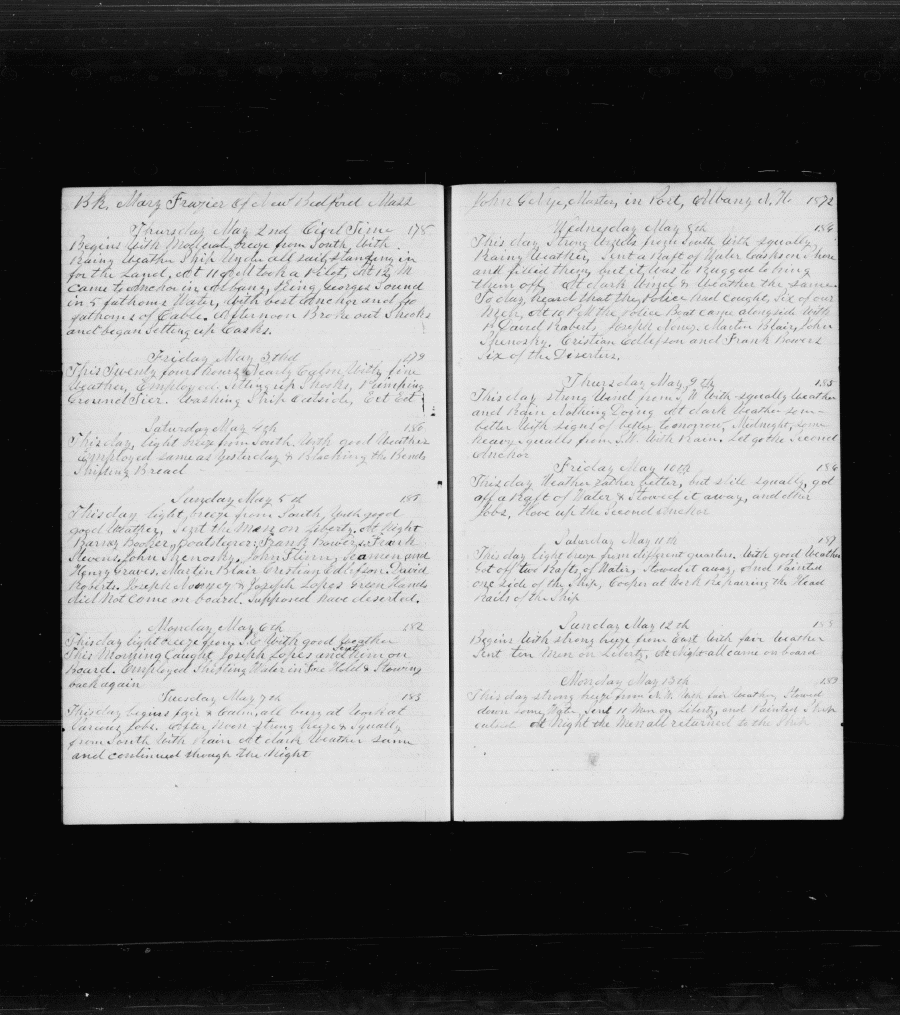 Bk. Mary Frazier of New Bedford Mass
Thursday May 2nd Civil Time 178
Begins With Moderate breeze from South, With
Rainy Weather Ship Under all sail, standing in
for the Land, At 11 AM took a Pilot, At 12 M
Came to Anchor in Albany, King Georges Sound
in 5 fathoms Water, With best Anchor and 60
fathoms of Cable. Afternoon Broke out Shooks
and began Setting up Casks.
Friday May 3rd 179
This Twenty four Hours Nearly Calm With fine
Weather, Employed Setting up Shooks, Pumping
Ground Tier. Washing Ship Outside, Ect Ect
Saturday May 4th 180
This day, light breeze from South With good Weather
Employed same as Yesterday & Blacking the Bends
Shifting Bread
Sunday May 5th 181
This day light breeze from South, With good
good Weather, Sent the Men on Liberty, At Night
Barny Booker, Boatsteerer, Frank Bowers, Frank
Stevens, John Spenosky, John Flinn, Seamen and
Henry Graves, Martin Blair Cristian Edlefson, David
Roberts, Joseph & Joseph Lopes Green Hands
did Not come on board. Supposed have deserted.
Monday May 6th 182
This day light breeze from With good Weather
This Morning Caught Joseph Lopes and Sent him on
Board. Employed Shifting Water in Fore Hold & Stowing
back again
Tuesday May 7th 183
This day begins fair & Calm, all being at Work at
Various Jobs. After Noon strong breeze & Squally
from South With Rain At dark Weather same
and continued through the Night
John G Nye, Master, in Port, Albany N. H. 1872
Wednesday May 8th 184
This day Strong Winds from South With squally
Rainy Weather, Sent a Raft of Water Casks on Shore
and filled them, but it Was to Rugged to bring
them off, At dark Wind & Weather the same.
To day, heard that the Police had caught, Six of our
Men, At 10 PM the Police Boat came alongside With
David Roberts, Joseph Martin Blair, John
Spenosky, Cristian Edlefson and Frank Bowers
Six of the Deserters.
Thursday May 9th 185
This day strong Wind from S.W With squally Weather
and Rain Nothing Doing At dark Weather some
better With signs of better Tomorrow, Midnight, some
heavy squalls from S.W. With Rain. Let go the Second
Anchor
Friday May 10th 186
This day Weather rather better, but still squally, got
off a Raft of Water & Stowed it away, and other
Jobs, Hove up the Second Anchor
Saturday May 11th 187
This day light breeze from different quarters. With good Weather
Got off two Rafts of Water, Stowed it away, And Painted
one side of the Ship, Cooper at Work Repairing the Head
rails of the Ship
Sunday May 12th 188
Begins With strong breeze from East With fair Weather
Sent ten Men on Liberty, At Night all came on board
Monday May 13th 189
This day strong breeze from With fair Weather, Stowed
down some Water Sent 10 Men on Liberty, and Painted Ship
outside At Night the Men all returned to the Ship